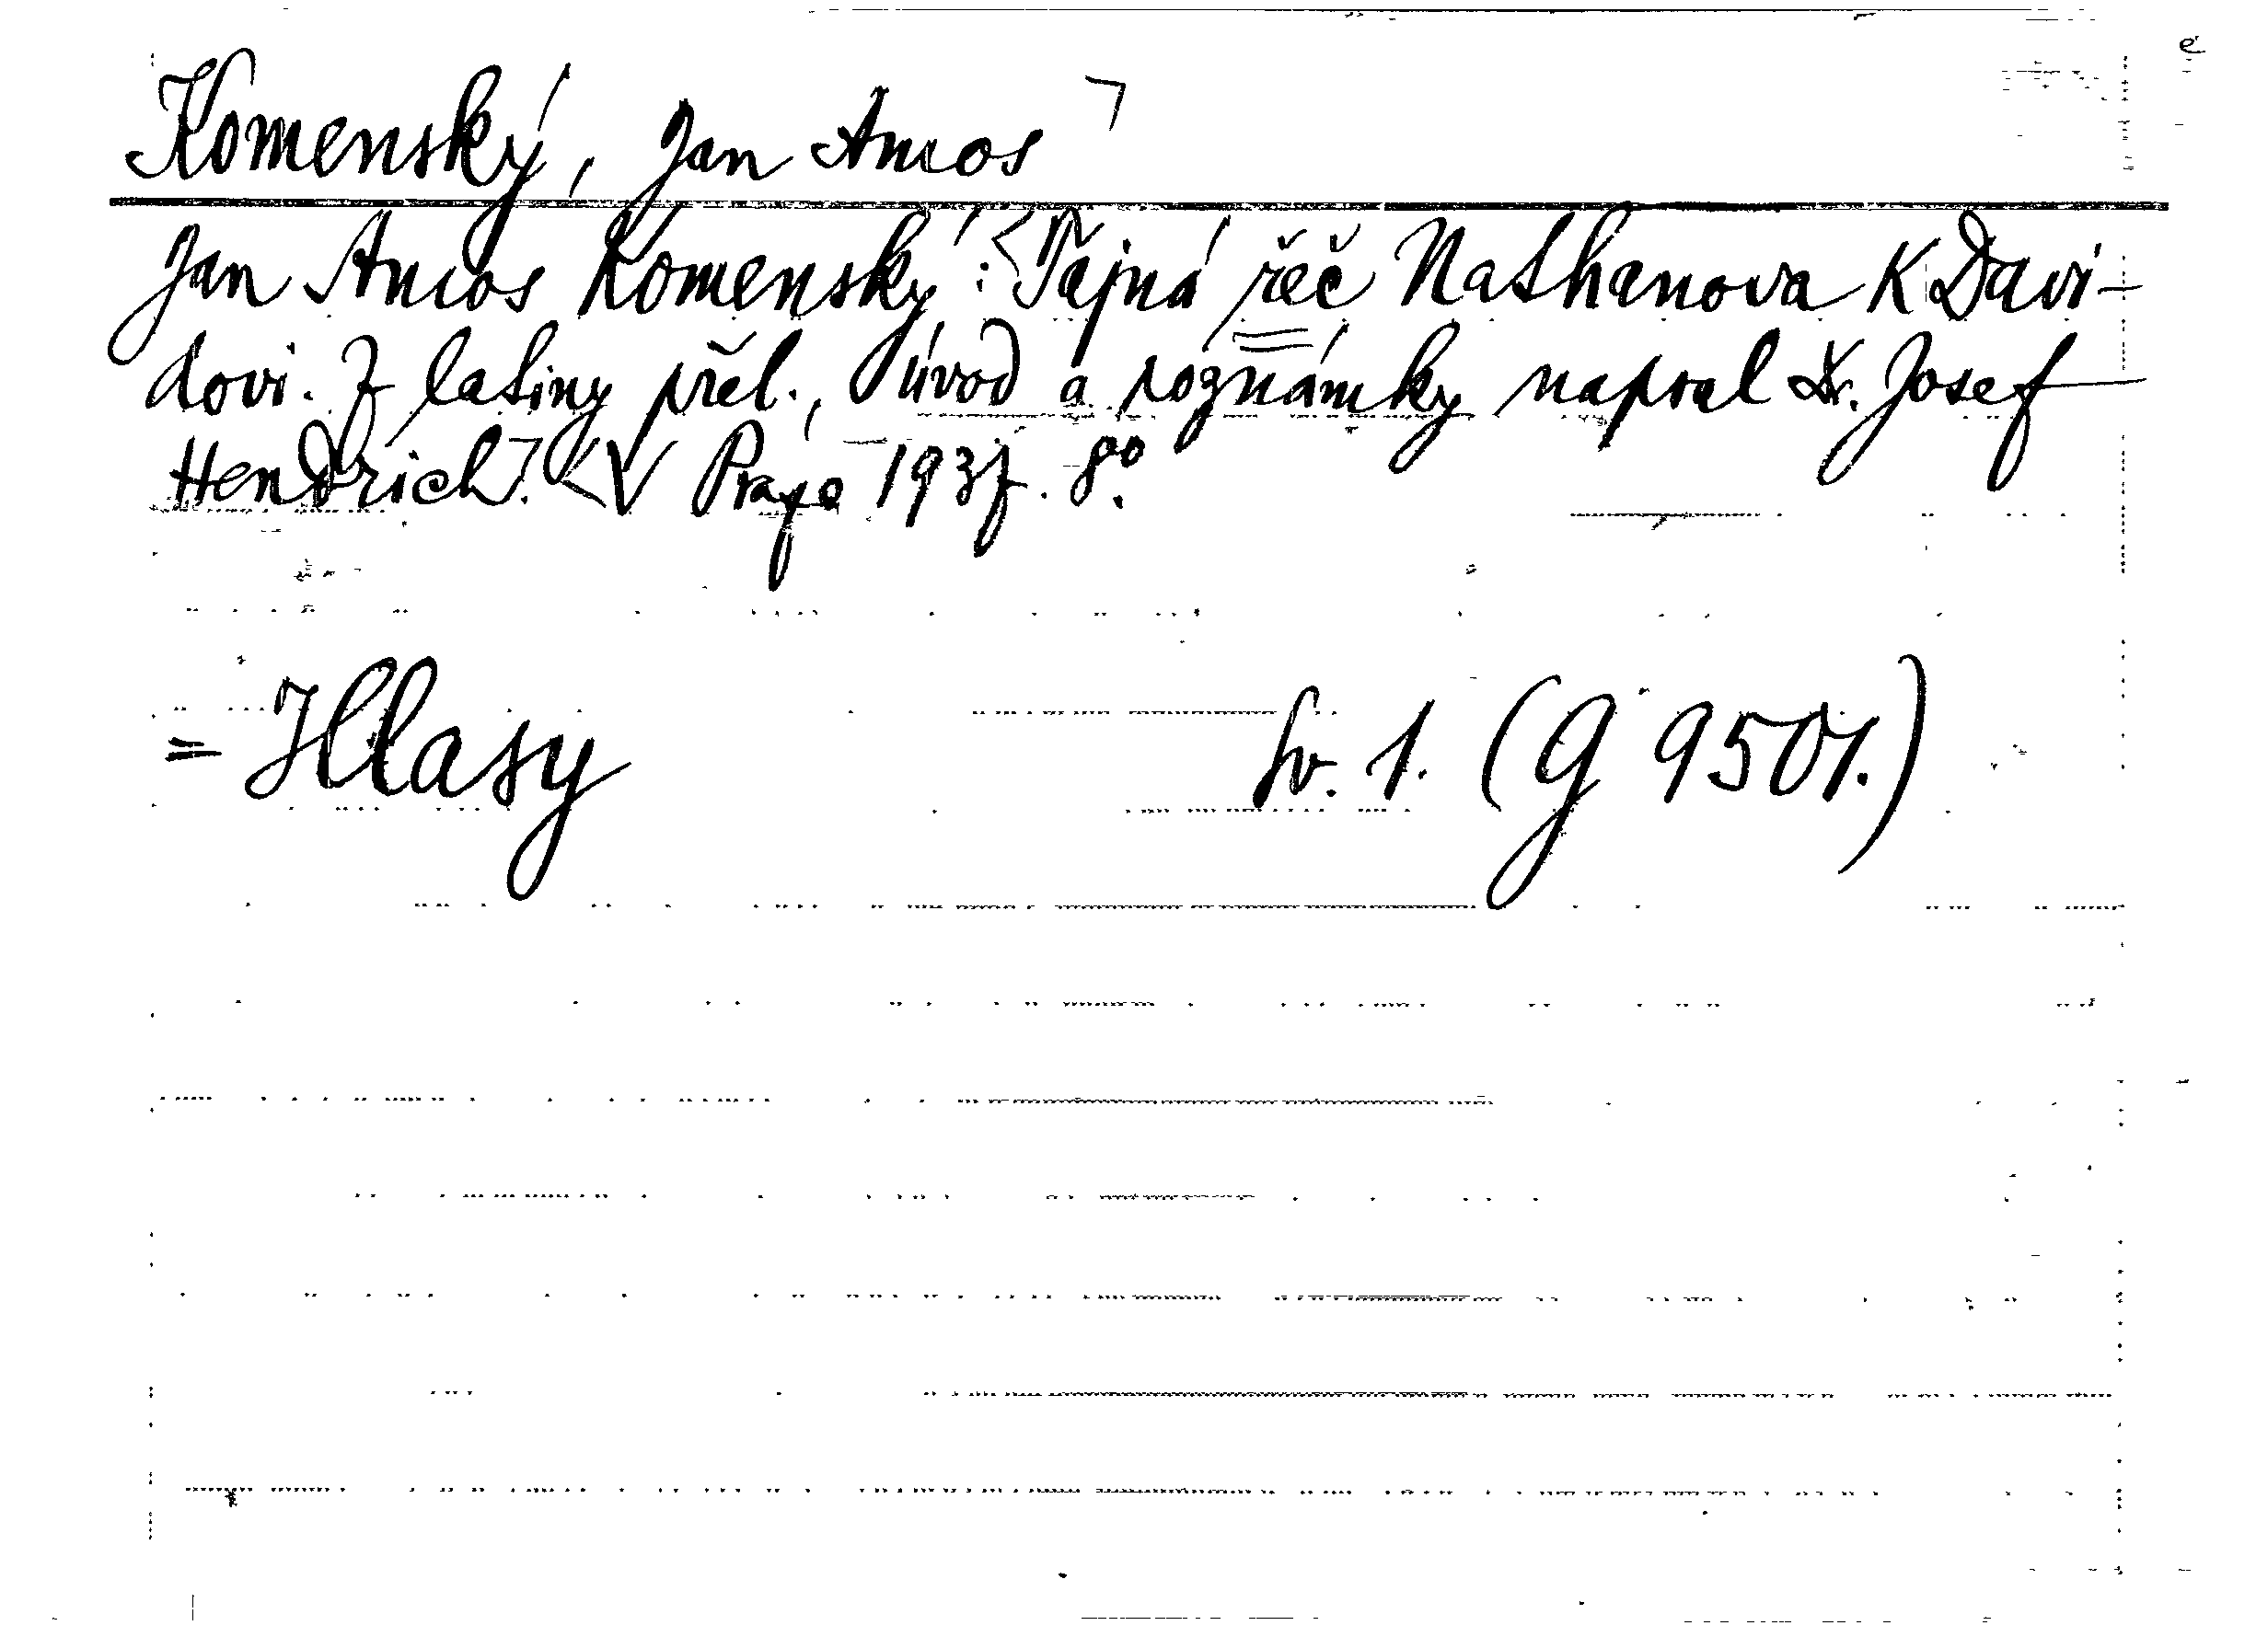 Komenský, Jan Amos ┐
Jan Amos Komenský: <Tajná řeč Nathanova K Davi-
dovi. Z latiny přel., úvod a poznámky napsal Dr. Josef
Hendrich┐. <V Praze 1937. 8°.
= Hlasy sv. 1. (G 9507.)